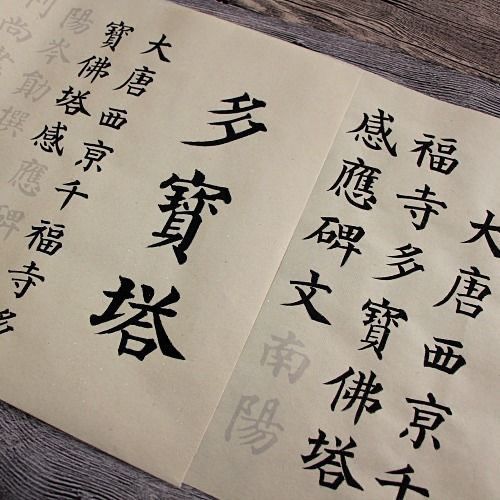 大唐西京千
福寺多寶佛塔
感應碑文南陽
多寶塔
大唐西京千福寺多
寶佛塔感應碑
陽岑勛撰